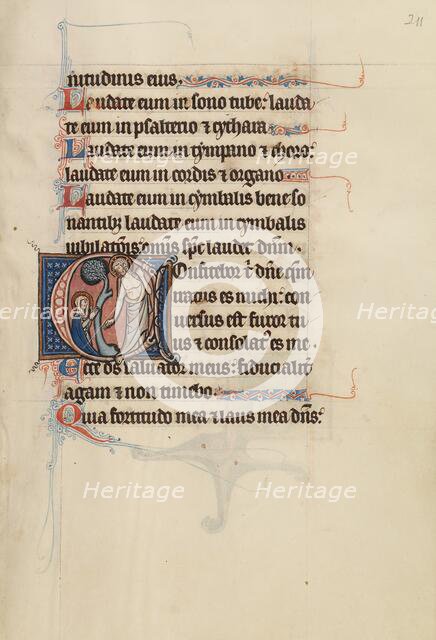 211
nitudinis eius.
Laudate eum in sono tube: lauda
te eum in psalterio & cythara
Laudate eum in tympano & choro:
laudate eum in cordis & organo
Laudate eum in cymbalis bene so
nantibus laudate eum in cymbalis
iubilatōis omīs sp̄c laudet dn̄m.
Confitebor t̄ dn̄e qm̄
iratus es michi: con
uersus est furor tu
us & consolat' es me.
Ecce ds̄ saluator meus: fiducialit'
agam & non timebo.
Quia fortitudo mea & laus mea dn̄s:
Heritage
Heritage
Heritage
Heritage
Heritage
Heritage